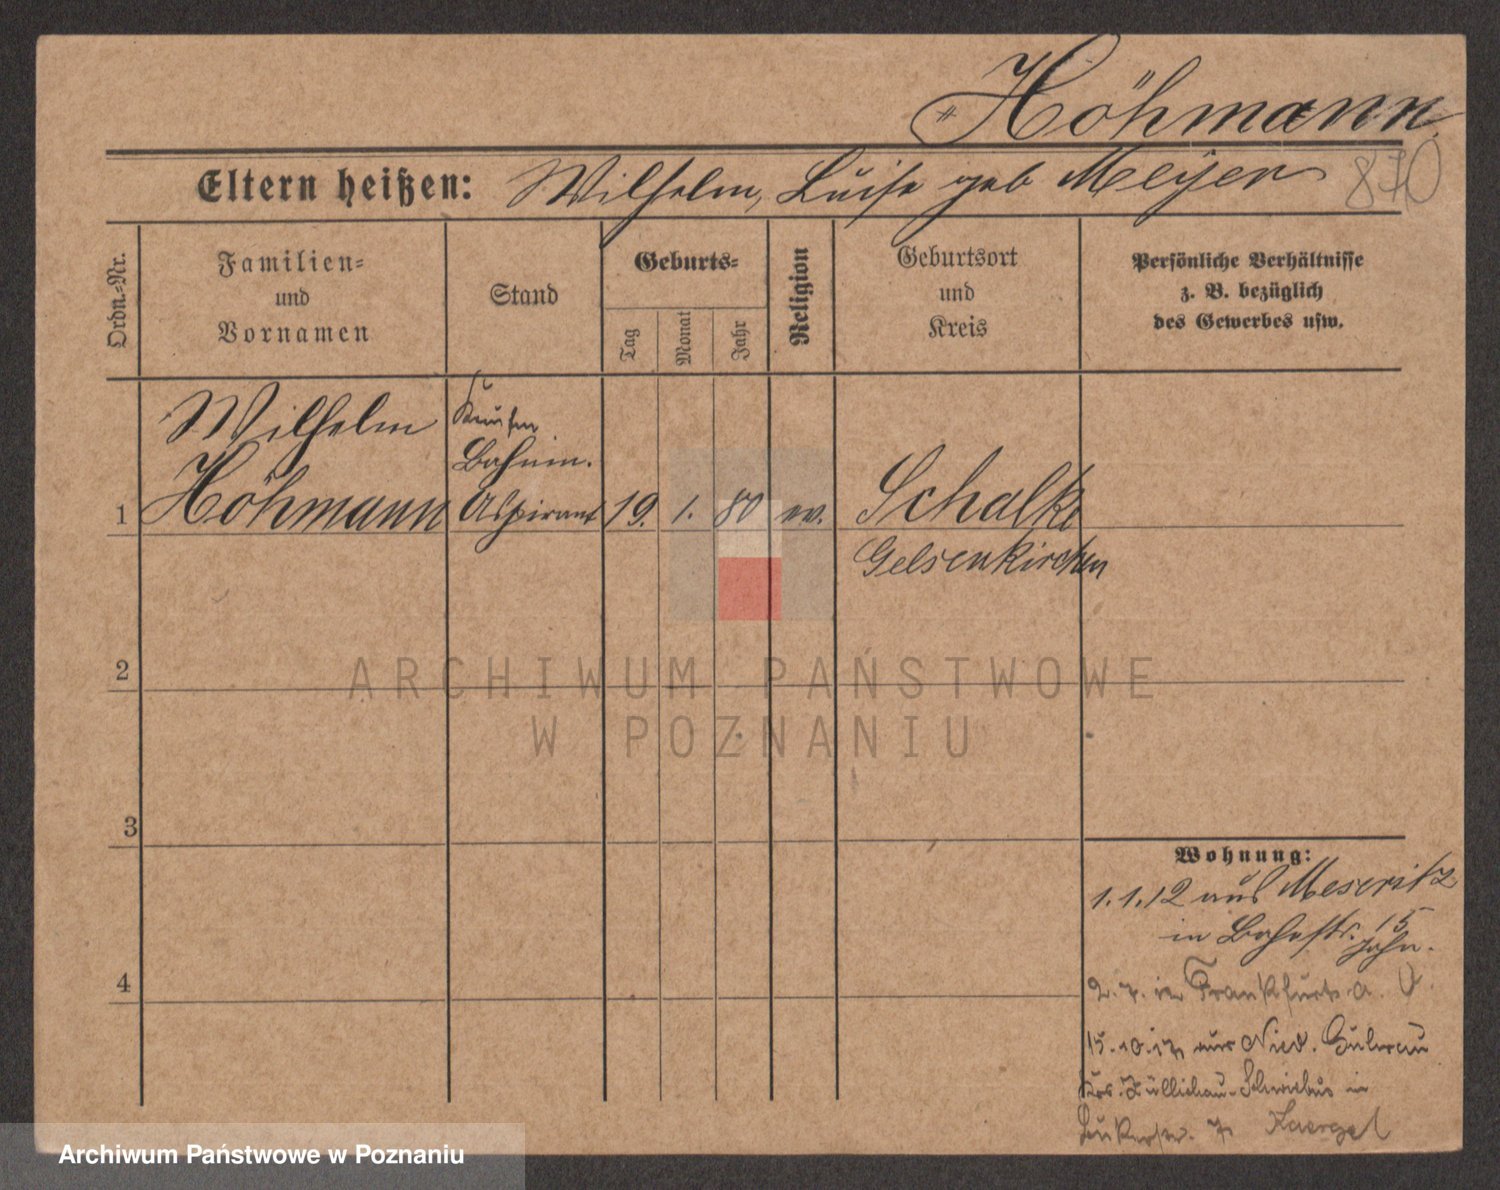 Höhmann
Eltern heißen: Wilhelm, Luise geb Meÿer 870
Ordn.-Nr.
Familien-
und
Vornamen
Stand
Geburts-
Tag
Monat
Jahr
Religion
Geburtsort
und
Kreis
Persönliche Verhältnisse
z. B. bezüglich
des Gewerbes usw.
Wilhelm
Bahnm.
1 Höhmann Aspirant 19. 1. 80 ev. Schalke
Gelsenkirchen
2
3
4
Wohnung:
1.1.12 aus Meseritz
in Bahnstr. 15
2.7. in Frankfurt a. O.
15.10.17 aus Nied. Gulrau
Krs. Züllichau-Schwiebus in
7
ARCHIWUM PAŃSTWOWE
W POZNANIU
Archiwum Państwowe w Poznaniu